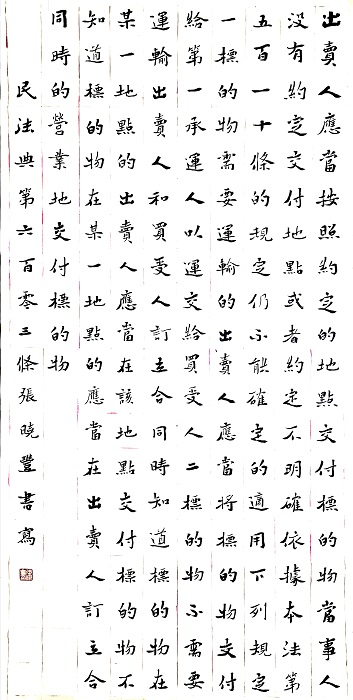 出賣人應當按照約定的地點交付標的物當事人
沒有約定交付地點或者約定不明確依據本法第
五百一十條的規定仍不能確定的適用下列規定
一標的物需要運輸的出賣人應當將標的物交付
給第一承運人以運交給買受人二標的物不需要
運輸出賣人和買受人訂立合同時知道標的物在
某一地點的出賣人應當在該地點交付標的物不
知道標的物在某一地點的應當在出賣人訂立合
同時的營業地交付標的物
民法典第六百零三條張曉豐書寫